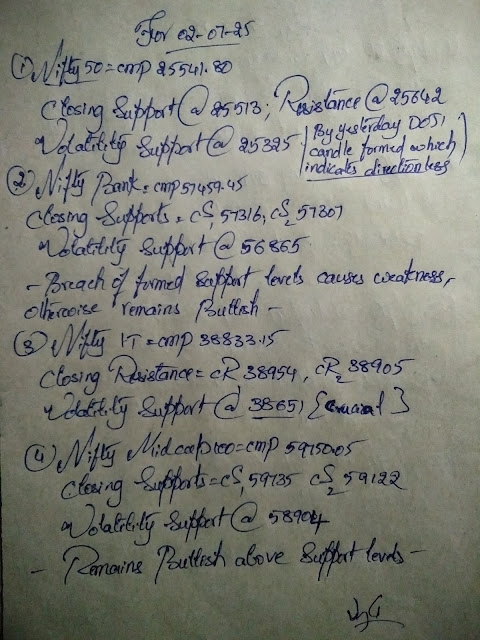 For 02-07-25
① Nifty 50 = cmp 25541.80
Closing Support @ 25513; Resistance @ 25642
Volatility Support @ 25325
By yesterday DOJI
candle formed which
indicates directionless
② Nifty Bank = cmp 57459.45
Closing Supports = CS1 57316, CS2 57307
Volatility Support @ 56865
- Breach of formed support levels causes weakness,
otherwise remains Bullish -
③ Nifty IT = cmp 38833.15
Closing Resistance = CR 38954, CR2 38905
Volatility Support @ 38651 {Crucial}
④ Nifty Midcap100 = cmp 59750.05
Closing Supports = CS1 59735 CS2 59122
Volatility Support @ 58904
- Remains Bullish above Support levels -